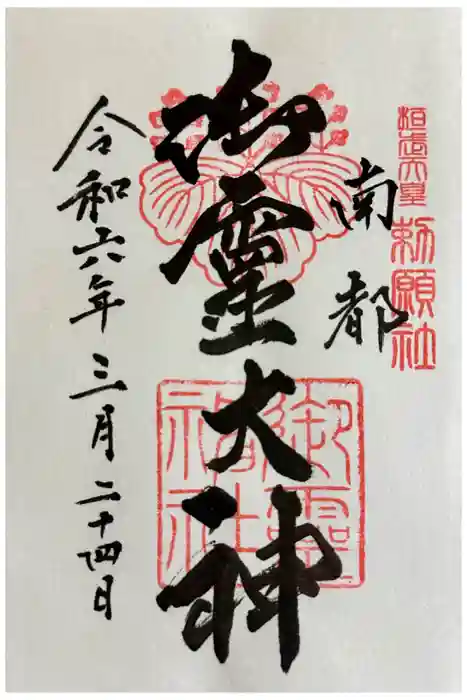 桓武天皇
勅願社
南都
御霊大神
御霊神社
令和六年三月二十四日